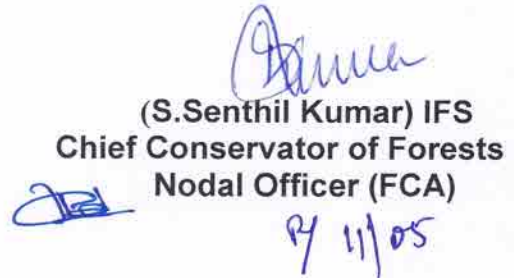 (S.Senthil Kumar) IFS
Chief Conservator of Forests
Nodal Officer (FCA)
11/05